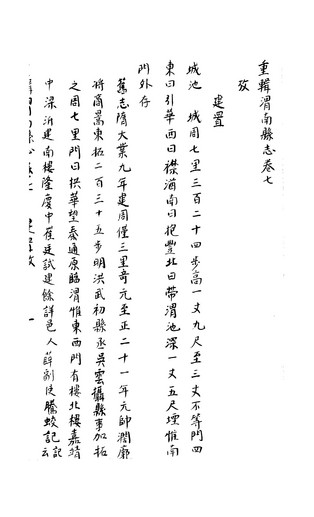 重輯渭南縣志卷七
攷
建置
城池 城周七里三百二十四步高一丈九尺至三丈不等門四
東曰引華西曰襟滻南曰抱豐北曰帶渭池深一丈五尺堙惟南
門外存
舊志隋大業九年建周僅三里奇元至正二十一年元帥濶廓
將商暠東拓二百三十五步明洪武初縣丞吳雲攝縣事加拓
之周七里門曰拱華望秦通原臨渭惟東西門有樓北樓嘉靖
中梁沂建南樓隆慶中崔廷試建餘詳邑人薛副使騰蛟記記云
一